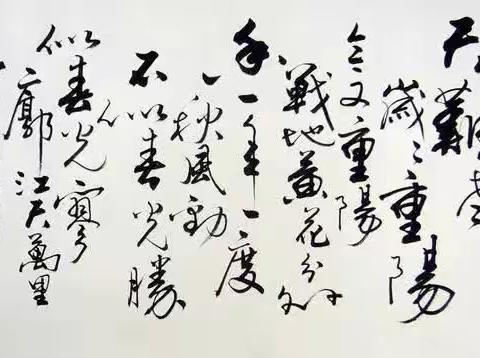 天難老
歲〻重陽
今又重陽
戰地黄花分外
香一年一度
秋風勁
不似春光勝
似春光寥
廓江天萬里